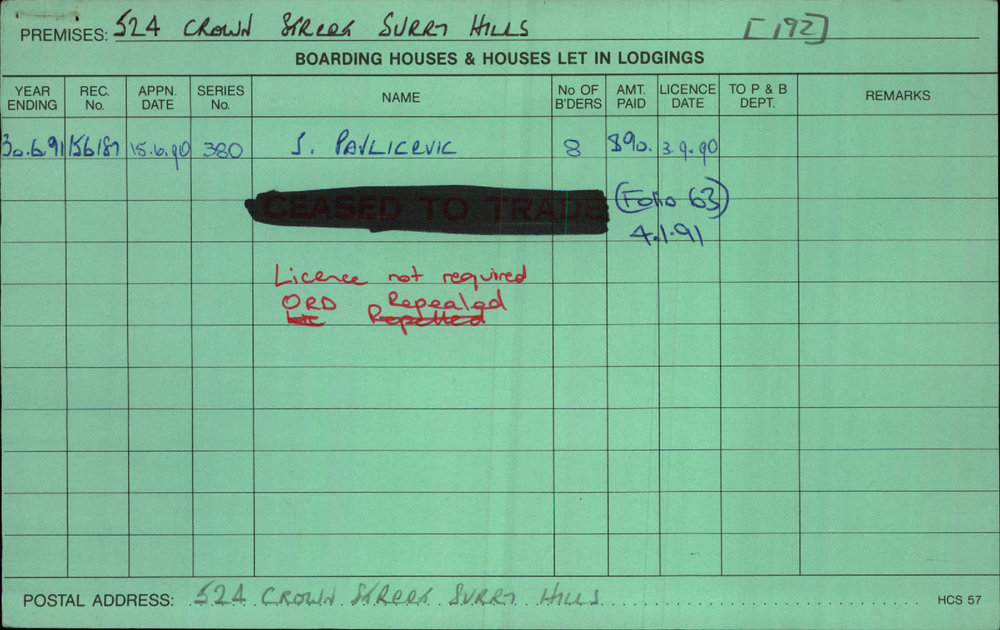 PREMISES: 524 CROWN STREET SURRY HILLS [192]
BOARDING HOUSES & HOUSES LET IN LODGINGS
YEAR ENDING REC. No. APPN. DATE SERIES No. NAME No OF B'DERS AMT. PAID LICENCE DATE TO P & B DEPT. REMARKS
30.6.91 156187 15.6.90 380 S. PAVLICEVIC 8 $90. 3.9.90
CEASED TO TRADE (Folio 63)
4.1.91
Licence not required
ORD Repealed
Repelled
POSTAL ADDRESS: 524 CROWN STREET SURRY HILLS HCS 57